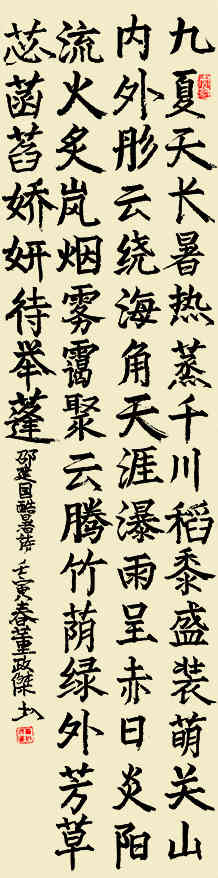 九夏天长暑热蒸千川稻黍盛装萌关山
内外彤云绕海角天涯瀑雨呈赤日炎阳
流火炙岚烟雾霭聚云腾竹荫绿外芳草
苾菡萏娇妍待举蓬
邵建国酷暑诗 壬寅春董政傑书